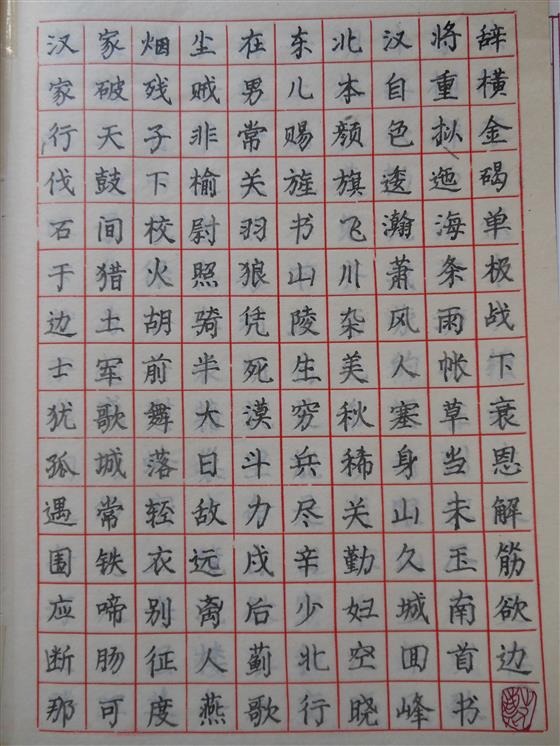 汉家烟尘在东北汉将辞
家破残贼男儿本自重横
行天子非常赐颜色拟金
伐鼓下榆关旌旗逶迤碣
石间校尉羽书飞瀚海单
于猎火照狼山川萧条极
边土胡骑凭陵杂风雨战
士军前半死生美人帐下
犹歌舞大漠穷秋塞草衰
孤城落日斗兵稀身当恩
遇常轻敌力尽关山未解
围铁衣远戍辛勤久玉筋
应啼别离后少妇城南欲
断肠征人蓟北空囬首边
那可度燕歌行晓峰书